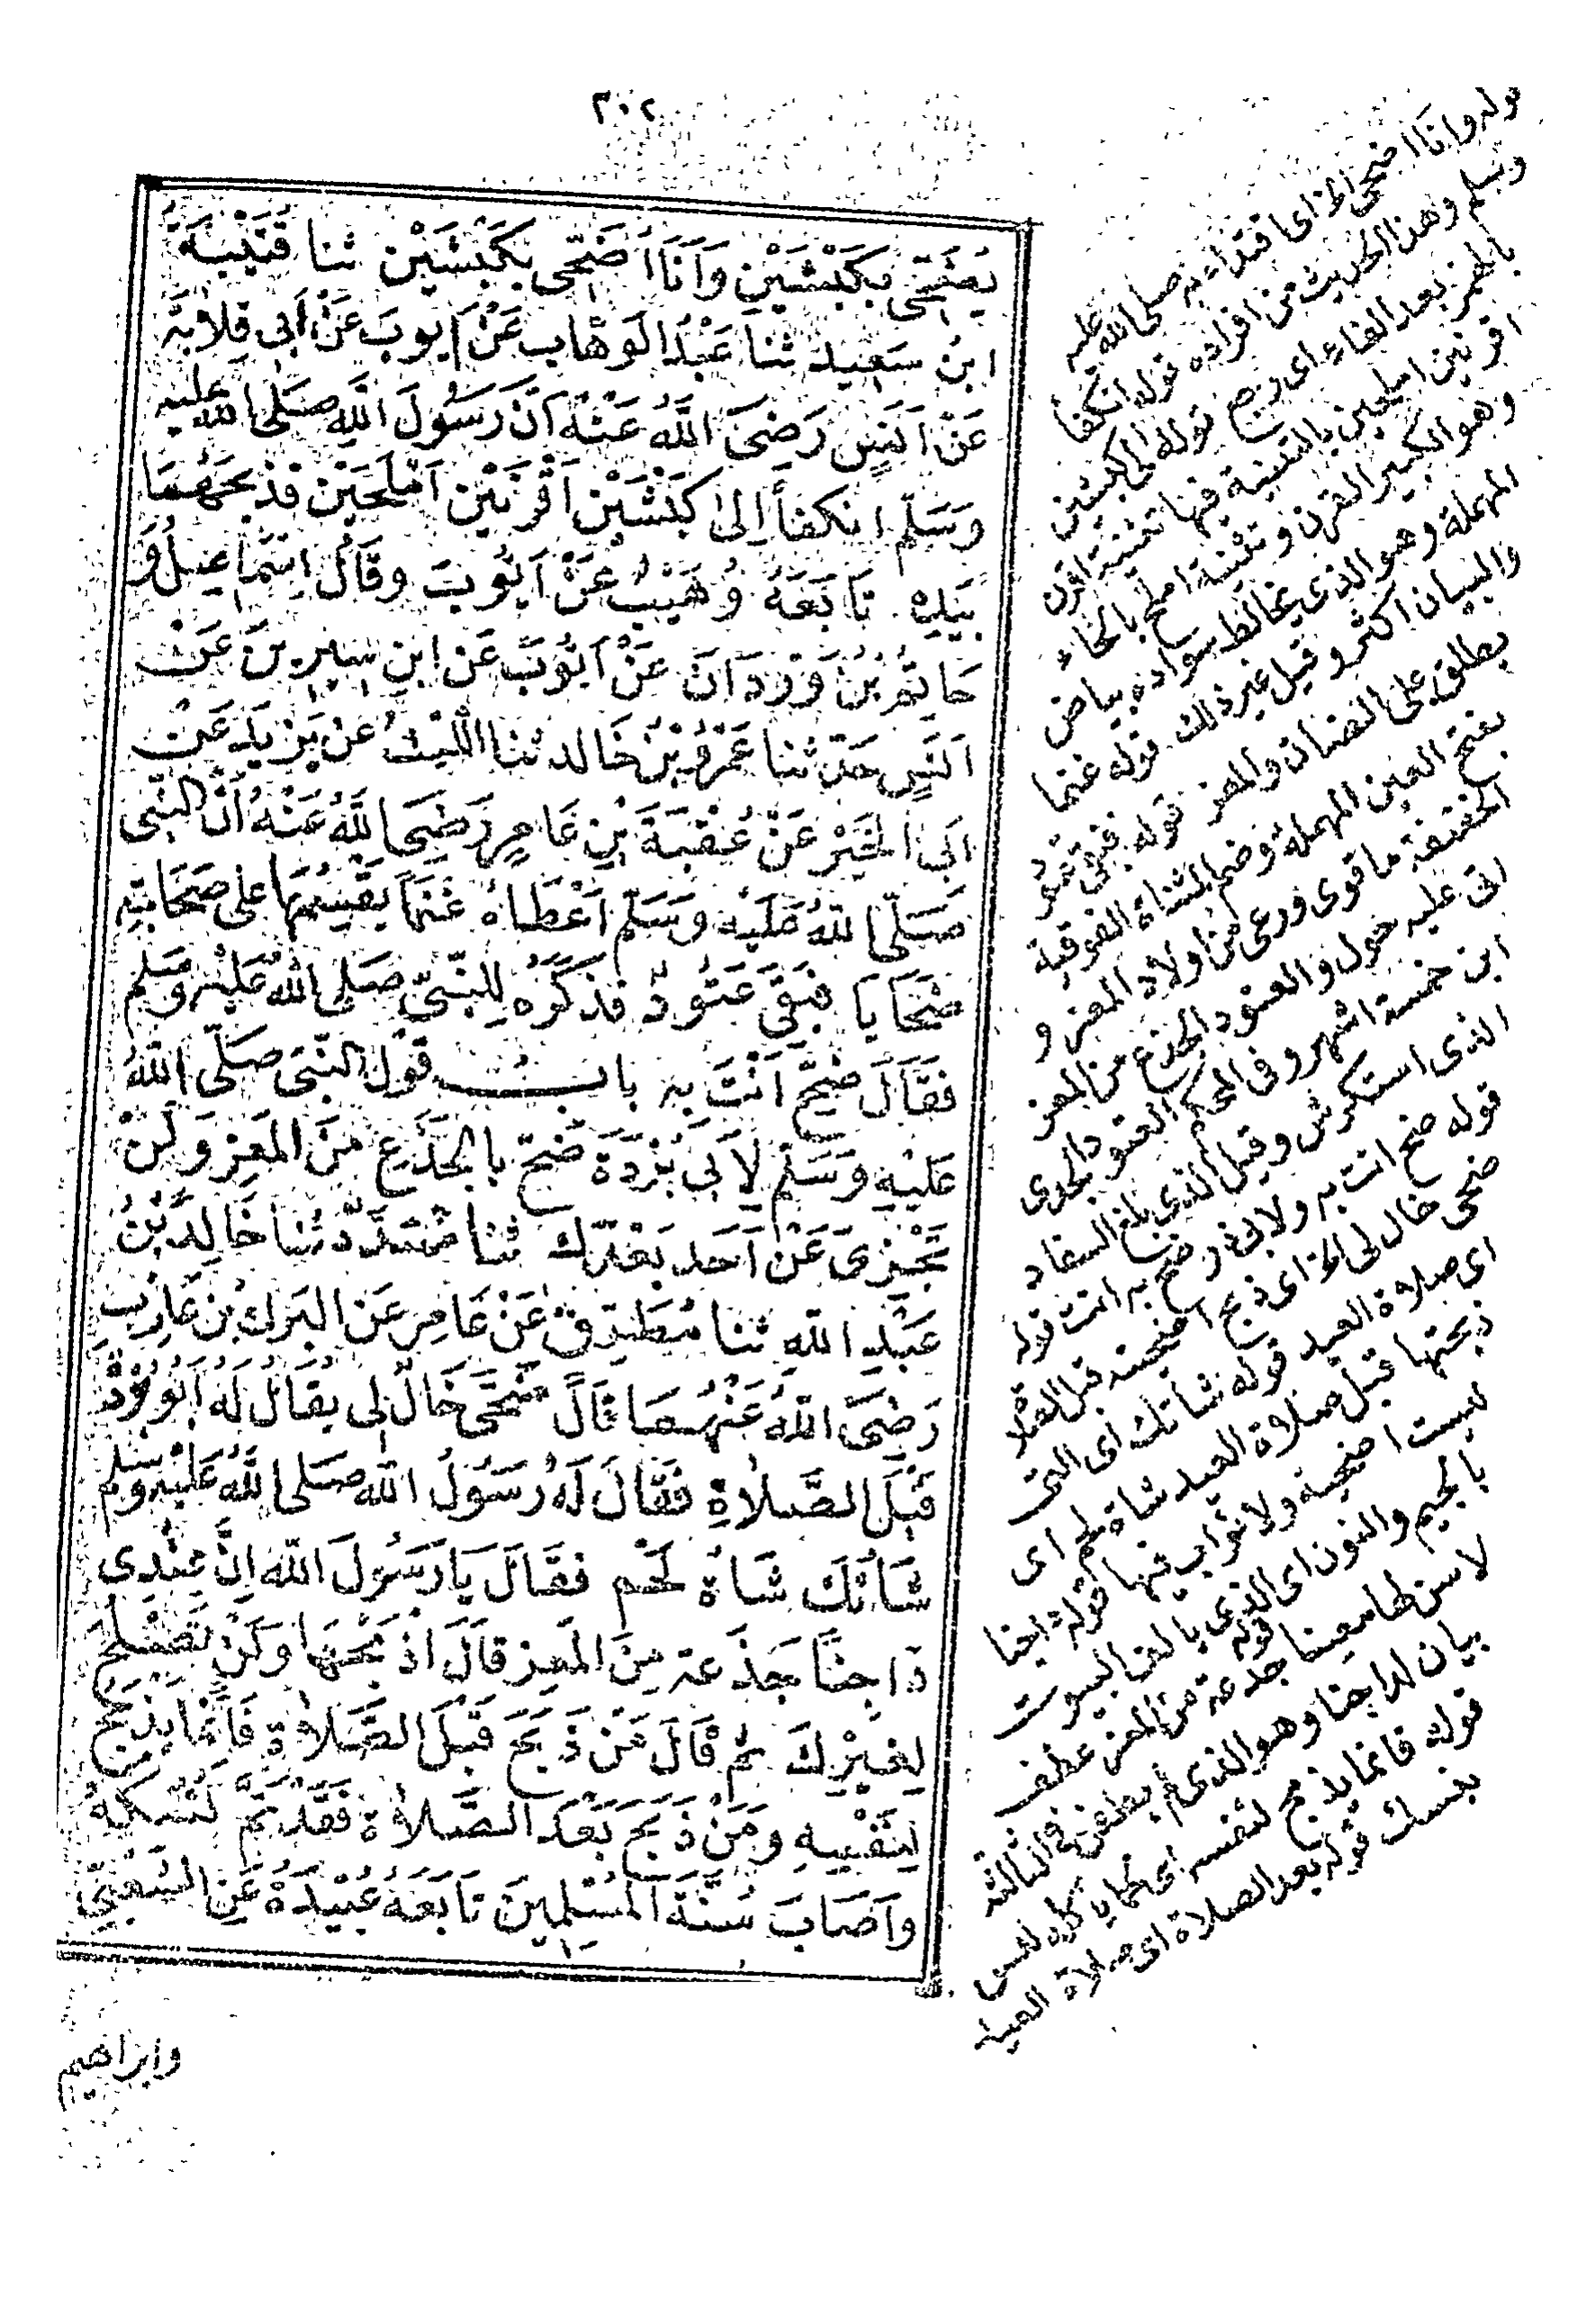 ٣٠٢
يُضَحِّى بِكَبْشَيْنِ وَاَنَا اُضَحِّى بِكَبْشَيْنِ ثنا قُتَيْبَةُ
ابنُ سَعِيد ثنا عَبْدُ الوَهَّاب عَنْ اَيوبَ عَنْ أَبى قِلابَةَ
عَنْ اَنَسٍ رَضِىَ اللَّهُ عَنْهُ اَنَّ رَسُولَ اللَّهِ صَلَّى اللهُ عليه
وَسَلَّم انكفأَ اِلىٰ كَبْشَيْنِ اَقْرَنَيْنِ اَمْلَحَيْنِ فذَبَحَهُمَا
بِيَدِهِ تَابَعَهُ وُهَيْبُ عَنْ اَيُّوبَ وقَالَ اِسْمَاعِيلُ وَ
حَاتِمُ بْنُ وَرْدَانَ عَنْ اَيُّوبَ عَن ابنِ سِيرِينَ عَنْ
اَنَسٍ حَدّثنا عَمْرُو بْنُ خَالد ثنا اللَّيْثُ عَنْ يَزِيدَ عَنْ
اَبى الخَيْر عَنْ عُقْبَةَ بْنِ عَامِرٍ رَضِىَ اللهُ عَنْهُ اَنَّ النَّبِى
صَلَّى اللهُ عَلَيْهِ وسَلَّم اَعْطَاهُ غَنَمًا يَقْسِمُهَا على صَحَابَتِهِ
ضَحَايَا فبَقِىَ عَتُودٌ فذَكَرَهُ لِلنَّبِىّ صَلى اللهُ عَليْهِ وَسَلم
فَقَالَ ضَحِّ اَنْتَ بِهِ بابُ قَوْل النَّبِى صَلَّى اللهُ
عَلَيْهِ وَسَلَّم لاَبى بُرْدَةَ ضَحِّ بالجَذَعِ مِنَ المَعْزِ وَلَنْ
تَجْزِىَ عَنْ اَحَد بَعْدَكَ ثنا مُسَدَّدٌ ثنا خَالِدُ بْنُ
عَبْدِ اللهِ ثنا مُطَرِّفٌ عَنْ عَامِر عَن البَرَاءِ بْن عَازِبٍ
رَضِىَ اللهُ عَنْهُمَا قَالَ ضَحَّى خَالٌ لِى يُقَالُ لَهُ اَبُو بُرْدَةَ
قَبْلَ الصَّلاَةِ فَقَالَ لَهُ رَسُولُ اللهِ صَلى اللهُ عَلَيْهِ وسَلم
شَاتُكَ شَاةُ لَحْم فقَالَ يَا رَسُولَ اللهِ اِنَّ عِنْدِى
دَاجِنًا جَذَعة مِنَ المَعِز قالَ اذْبَحْهَا وَلَنْ تَصْلُحَ
لِغَيْرِكَ ثُم قَالَ مَنْ ذَبَحَ قَبْلَ الصَّلاَةِ فَاِنَّمَا يَذْبَحُ
لِنَفْسِهِ ومَنْ ذَبَحَ بَعْدَ الصَّلاَةِ فَقَدْ تَمَّ نُسُكُهُ
واَصَابَ سُنَّةَ اَلمُسْلِمِينَ تَابَعَهُ عُبَيْدَةُ عَنِ الشَّعْبِىِّ
وابراهيم
قوله وانا اضحى الخ اى اقتداء به صلى الله عليه
وسلم وهذا الحديث من افراده قوله انكفأ
بالهمز بعد الفاء اى رجع قوله الى كبشين
اقرنين املحين بالتثنية فيها تثنية اقرن
وهو الكبير القرن وتثنية املح بالحاء
المهملة وهو الذى يخالط سواده بياض
والبياض اكثر وقيل غير ذلك قوله غنما
يطلق على الضان والمعز قوله فبقى عتود
بفتح العين المهملة وضم المثناة الفوقية
الخفيفة ما قوى ورعى من اولاد المعز و
اتى عليه حول والعتود الجذع من المعز
ابن خمسة اشهر وفى المحكم العتود الجدى
الذى استكرش وقيل الذى بلغ السفاد
قوله ضح انت به ولابى ذر ضح به انت قوله
ضحى خال لى الخ اى ذبح اضحيته قبل الصلاة
اى صلاة العيد قوله شاتك اى التى
ذبحتها قبل صلاة العيد شاة لحم اى
ليست اضحية ولا ثواب فيها قوله داجنا
بالجيم والنون اى الذى يالف البيوت
لا سن لها معينا قوله جذعة من المعز عطف
بيان لداجنا وهو الذى لم يطعن فى الثالثة
قوله فانما يذبح لنفسه اى لحما ياكله ليس
بنسك قوله بعد الصلاة اى صلاة العيد